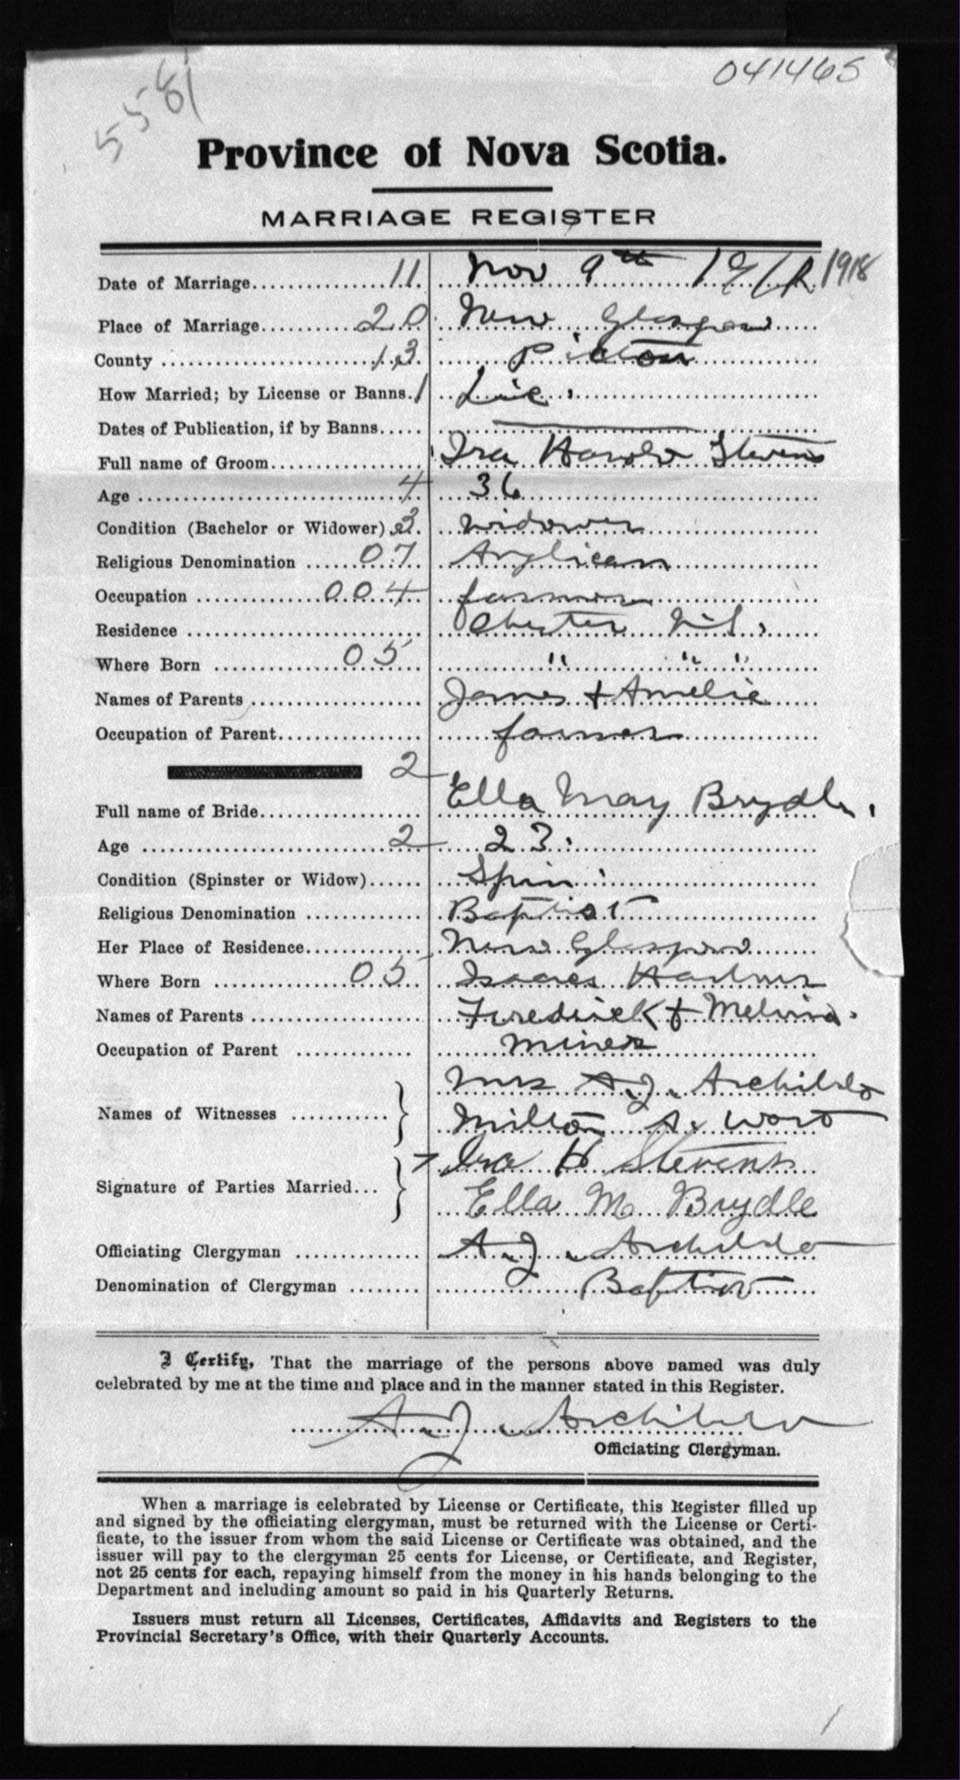 5581
041465
Province of Nova Scotia.
MARRIAGE REGISTER
Date of Marriage 11 Nov 9th 1918 1918
Place of Marriage 20 New Glasgow
County 13 Pictou
How Married; by License or Banns. 1 Lic.
Dates of Publication, if by Banns
Full name of Groom Ira Harold Stevens
Age 4 36
Condition (Bachelor or Widower) 3 widower
Religious Denomination 07 Anglican
Occupation 004 farmer
Residence Chester N.S.
Where Born 05 " " "
Names of Parents James & Amelie
Occupation of Parent farmer
2
Full name of Bride Ella May Brydle.
Age 2 23.
Condition (Spinster or Widow) Spin
Religious Denomination Baptist
Her Place of Residence New Glasgow
Where Born 05 Isaacs Harbor
Names of Parents Fredrick & Melvina.
Occupation of Parent miner
Names of Witnesses } Mrs A. J. Archibald
Milton A.
Signature of Parties Married } Ira H Stevens
Ella M. Brydle
Officiating Clergyman A. J. Archibald
Denomination of Clergyman Baptist
I Certify, That the marriage of the persons above named was duly
celebrated by me at the time and place and in the manner stated in this Register.
A. J. Archibald
Officiating Clergyman.
When a marriage is celebrated by License or Certificate, this Register filled up
and signed by the officiating clergyman, must be returned with the License or Certi-
ficate, to the issuer from whom the said License or Certificate was obtained, and the
issuer will pay to the clergyman 25 cents for License, or Certificate, and Register,
not 25 cents for each, repaying himself from the money in his hands belonging to the
Department and including amount so paid in his Quarterly Returns.
Issuers must return all Licenses, Certificates, Affidavits and Registers to the
Provincial Secretary's Office, with their Quarterly Accounts.
1